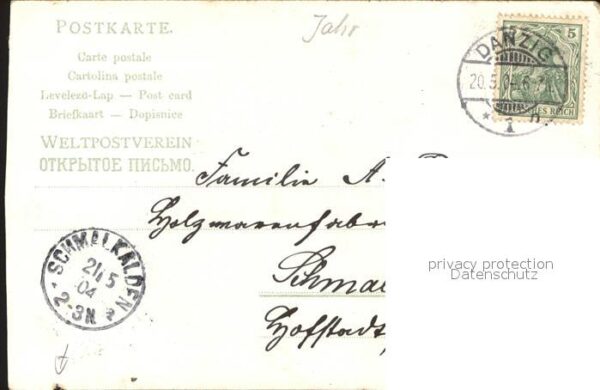 POSTKARTE.
Carte postale
Cartolina postale
Levelező-Lap — Post card
Briefkaart — Dopisnice
WELTPOSTVEREIN
ОТКРЫТОЕ ПИСЬМО.
Jahr
5
DANZIG
20.5.04.6-
* 1 n.
ES REICH
Familie A.
Holzwarenfabr
Schma
Hofstadt
SCHMALKALDEN
21 5
04
2-3N
privacy protection
Datenschutz